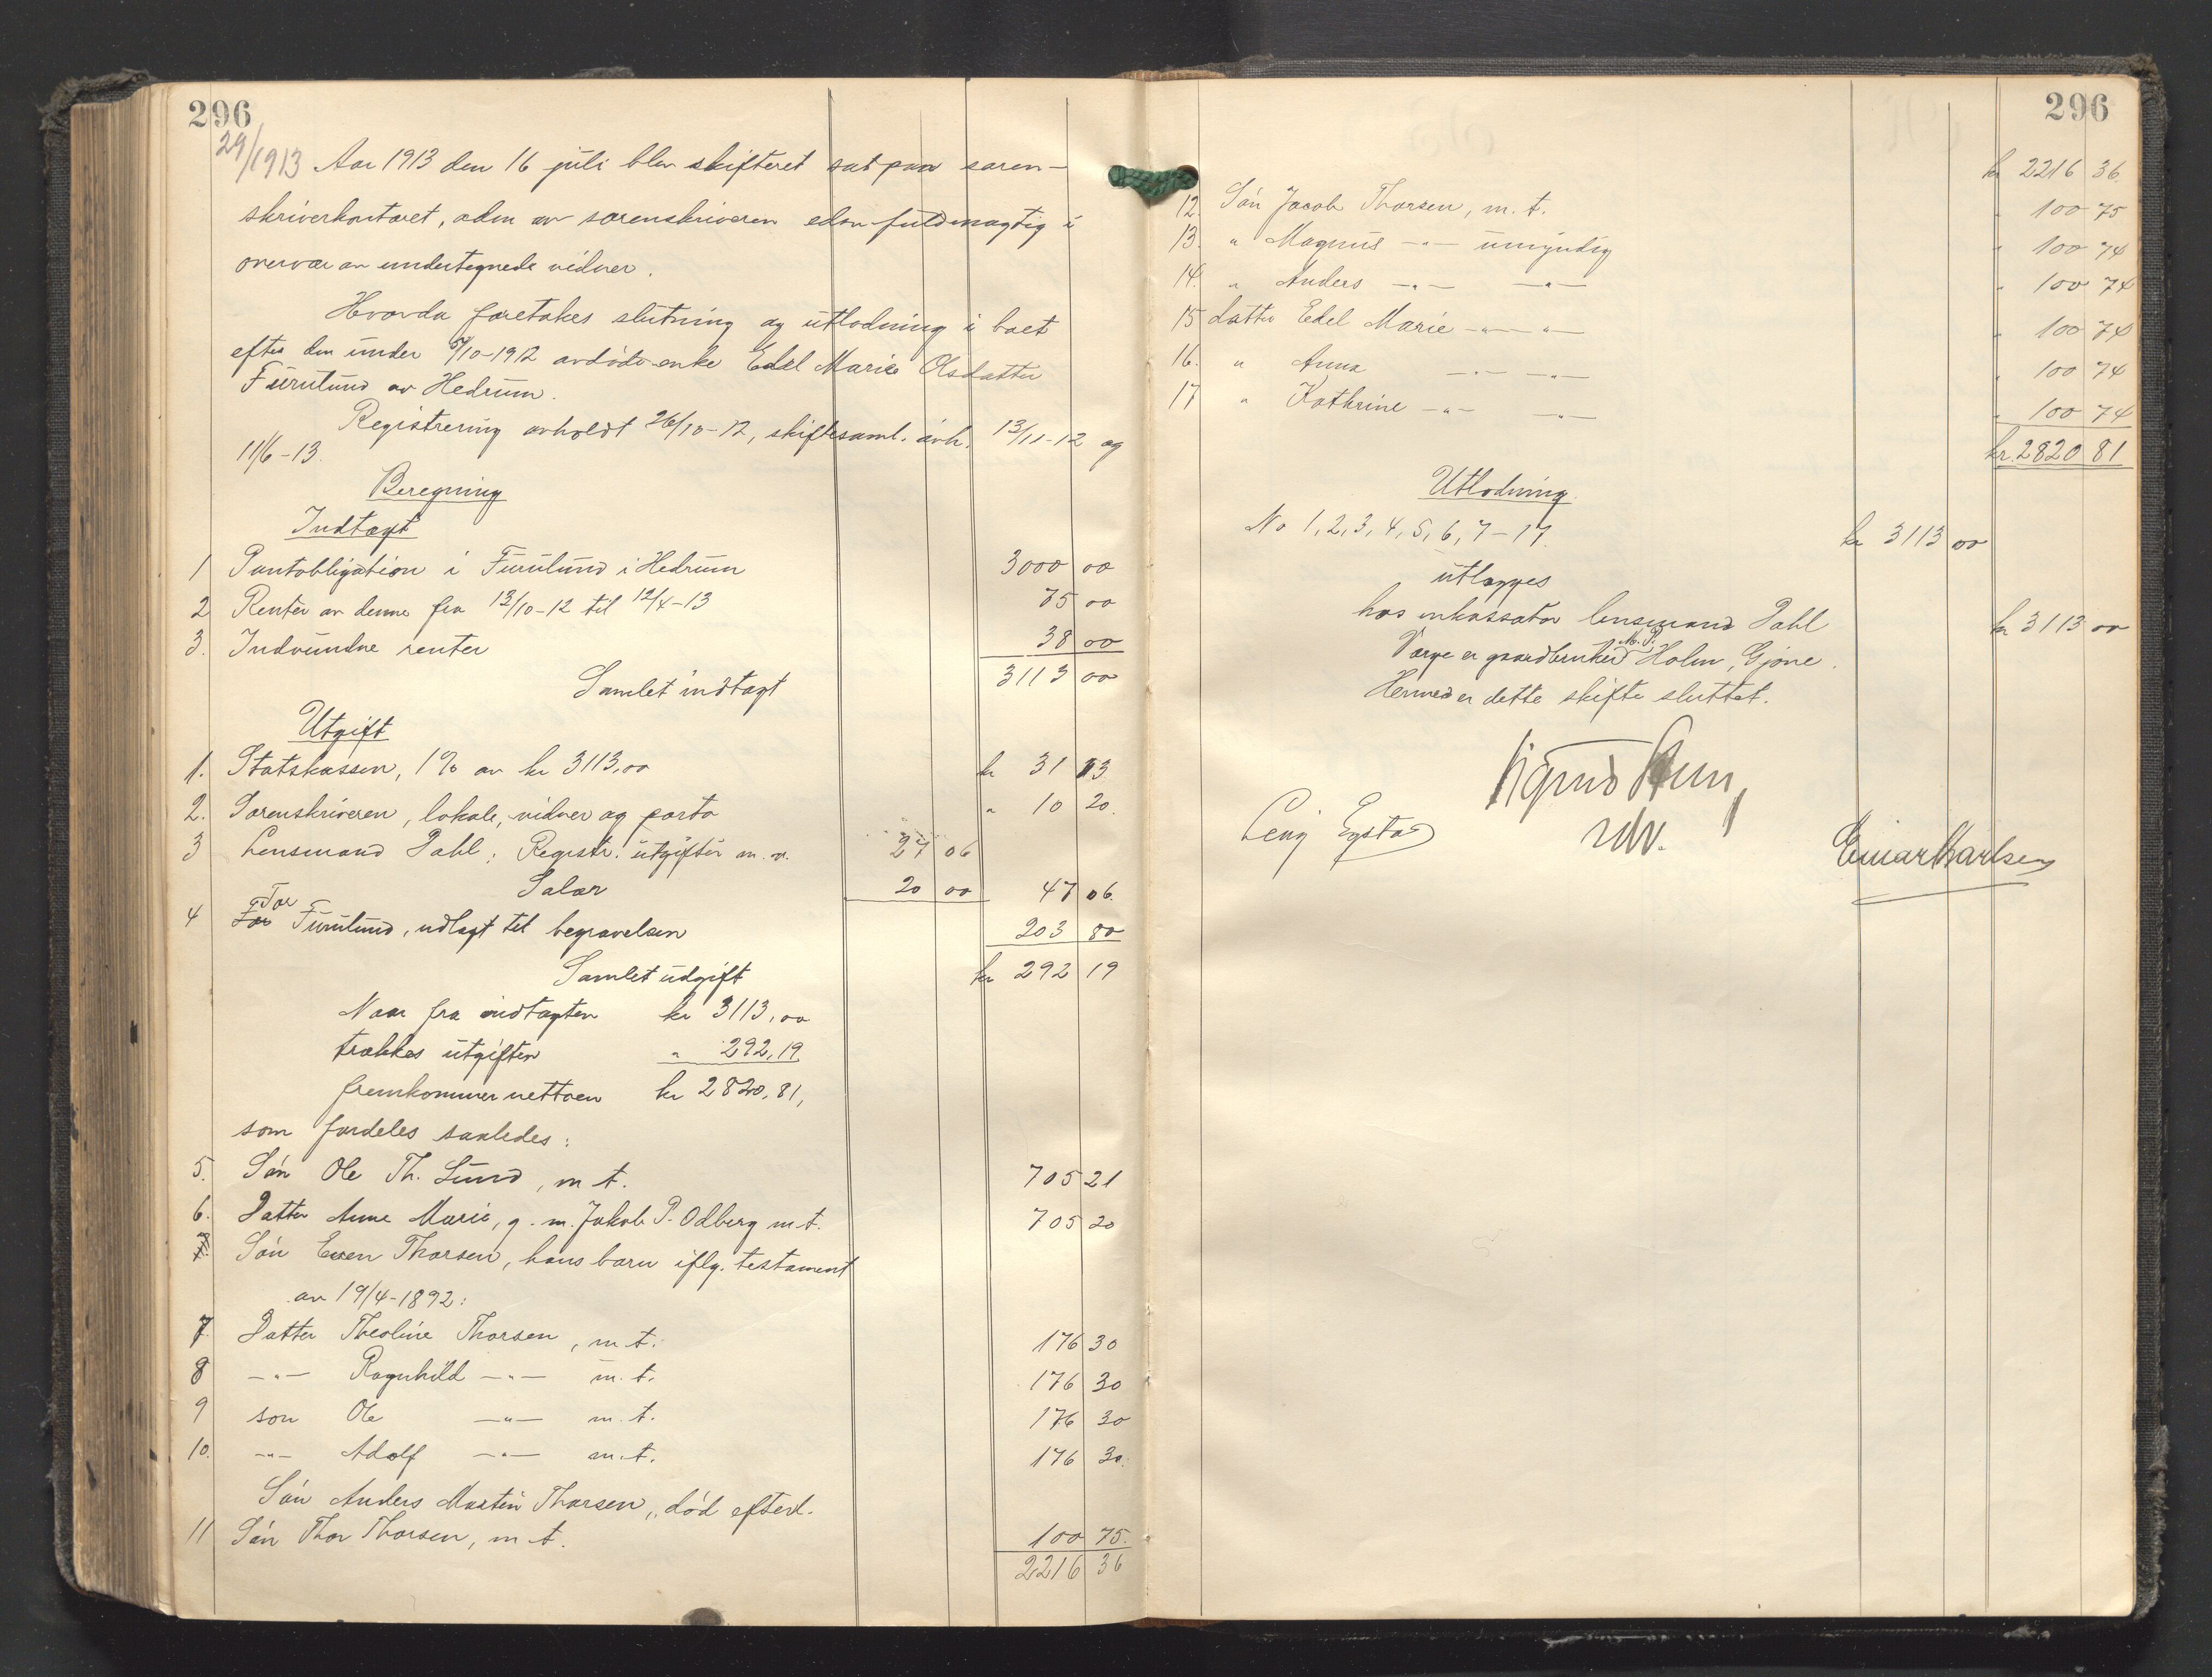 296
29/1913 Aar 1913 den 16 juli blev skifteret sat paa soren-
skriverkontoret, adm av sorenskriveren edsv fuldmægtig i
overvær av undertegnede vidner.
Hvorda foretokes slutning og utlodning i boet
efter den under 9/10-1912 avdöde enke Edel Marie Olsdatter
Furulund av Hedrum.
Registrering avholdt 26/10-12, skiftesaml. avh. 13/11-12 og
11/6-13.
Beregning
Indtægt
1 Pantobligation i Furulund i Hedrum 3000 00
2 Renter av denne fra 13/10-12 til 12/4-13 75 00
3. Indvundne renter 38 00
Samlet indtægt 3113 00
Utgift
1. Statskassen, 1% av kr 3113,00 kr 31 13
2. Sorenskriveren, lokale, vidner og porto " 10 20.
3 Lensmand Dahl: Registr. utgifter m.v. 27 06
Salær 20 00 47 06.
4 Tor Furulund, udlagt til begravelsen 203 80
Samlet udgift kr 292 19
Naar fra indtægten kr 3113,00
trækkes utgiften " 292,19
fremkommer nettoen kr 2820,81,
som fordeles saaledes:
5. Sön Ole Th. Lund, m.t. 705 21
6. Datter Anne Marie, g.m. Jakob P. Odberg m.t. 705 20
Sön Even Thorsen, hans barn iflg. testament
av 19/4-1892:
7. Datter Theoline Thorsen, m.t. 176 30
8 -"- Ragnhild -"- m.t. 176 30
9 sön Ole -"- m.t. 176 30
10. -"- Adolf -"- m.t. 176 30.
Sön Anders Martin Thorsen, död efterl.
11 Sön Thor Thorsen, m.t. 100 75.
2216 36
296
kr 2216 36.
12. Sön Jacob Thorsen, m.t. " 100 75
13. " Magnus -"- umyndig " 100 74
14. " Anders -"- -"- " 100 74
15 datter Edel Marie -"- -"- " 100 74
16. " Anna -"- -"- " 100 74
17 " Kathrine -"- -"- " 100 74
kr. 2820 81
Utlodning.
No 1, 2, 3, 4, 5, 6, 7-17. kr 3113 00
utlægges
hos inkassator lensmand Dahl kr 3113 00
Værge er gaardbruker M. P. Holm, Gjone.
Hermed er dette skifte sluttet.
Egstad
Einar Karlsen